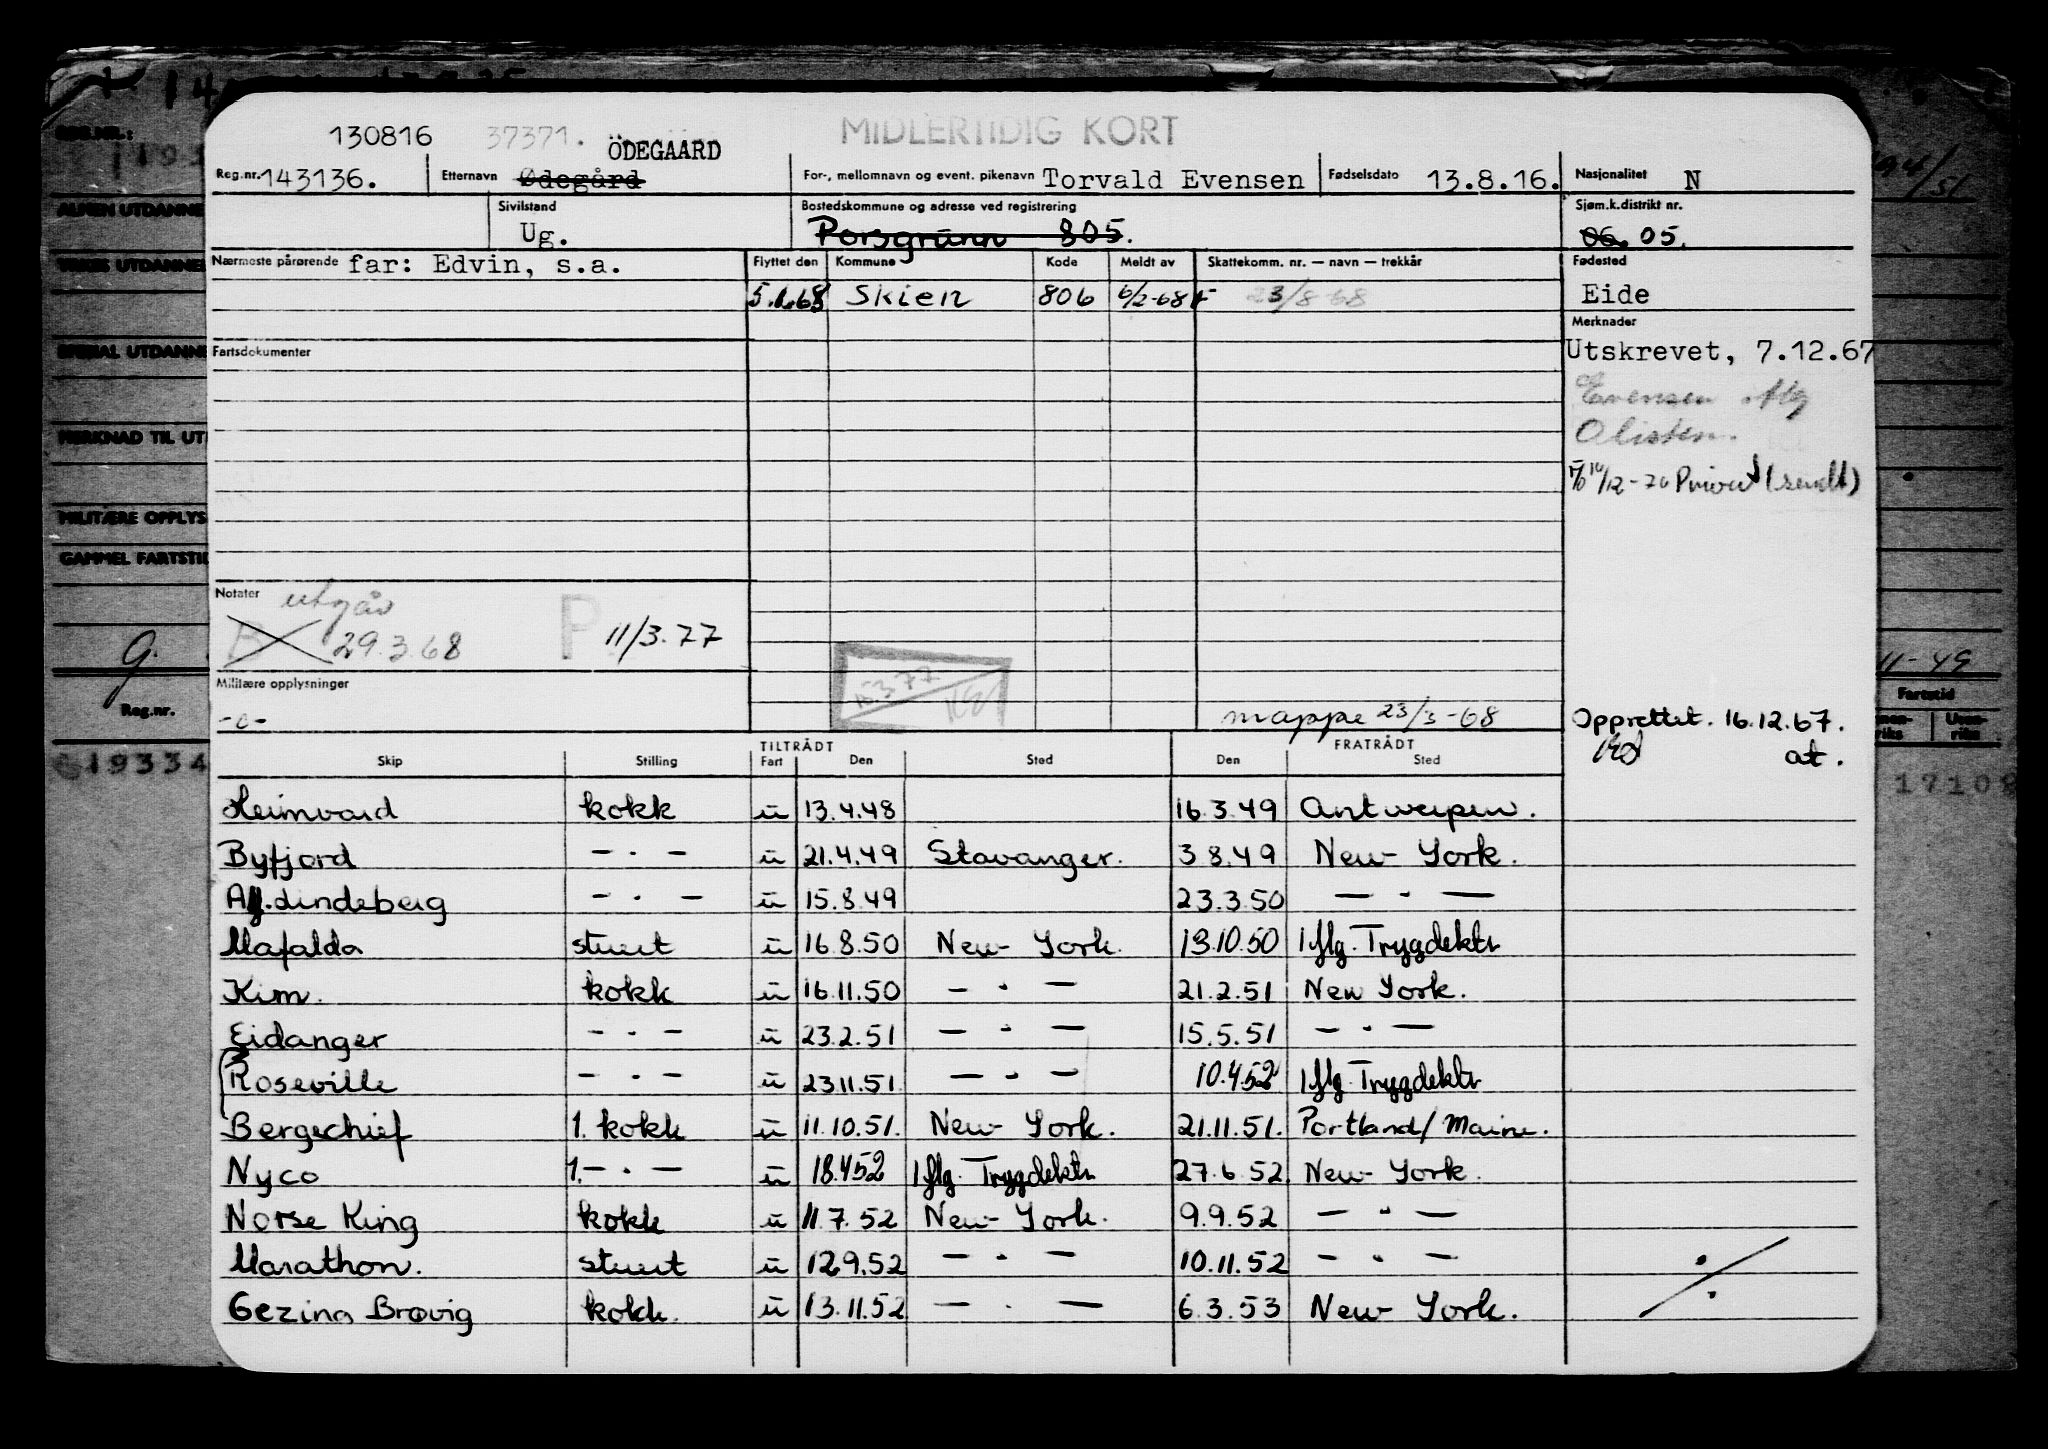 130816 37371. ÖDEGAARD MIDLERTIDIG KORT
Reg.nr. 143136. Etternavn Ødegård For-, mellomnavn og event. pikenavn Torvald Evensen Fødselsdato 13.8.16. Nasjonalitet N
Sivilstand Ug. Bostedskommune og adresse ved registrering Porsgrunn 805. Sjøm.k.distrikt nr. 06. 05.
Nærmeste pårørende far: Edvin, s.a. Flyttet den Kommune Kode Meldt av Skattekomm. nr. — navn — trekkår Fødested
5.1.68 Skien 806 6/2-68 23/8 68 Eide
Merknader
Fartsdokumenter Utskrevet, 7.12.67
Evensen iflg
Olisten.
14/12-70 Privat (sendt)
Notater utgår
B 29.3.68 P 11/3.77
Militære opplysninger
-o- mappe 23/3-68 Opprettet. 16.12.67.
at.
TILTRÅDT FRATRÅDT
Skip Stilling Fart Den Sted Den Sted
Heimvard kokk u 13.4.48 16.3.49 Antwerpen.
Byfjord — . — u 21.4.49 Stavanger. 3 8.49 New York.
Alf.Lindeberg — . — u 15.8.49 23.3.50 — . —
Mafalda stuert u 16.8.50 New York. 13.10.50 Iflg. Trygdektr
Kim. kokk u 16.11.50 — . — 21.2.51 New York.
Eidanger — . — u 23.2.51 — . — 15.5.51 — . —
Roseville — . — u 23.11.51 — . — 10.4.52 Iflg. Trygdektr
Bergechief 1. kokk u 11.10.51. New York. 21.11.51. Portland/Maine.
Nyco 1. — . — u 18.4.52 Iflg. Trygdektr 27.6.52 New York.
Norse King kokk u 11.7.52 New York. 9.9.52 — . —
Marathon. stuert u 12.9.52 — . — 10.11.52 — . —
Gezina Brøvig kokk. u 13.11.52 — . — 6.3.53 New York.
ALMEN UTDANNE
YRKES UTDANNE
SPESIAL UTDANNE
MERKNAD TIL UT
MILITÆRE OPPLYS
GAMMEL FARTSTI
Reg.nr.
19334
11-49
Fartstid
17108